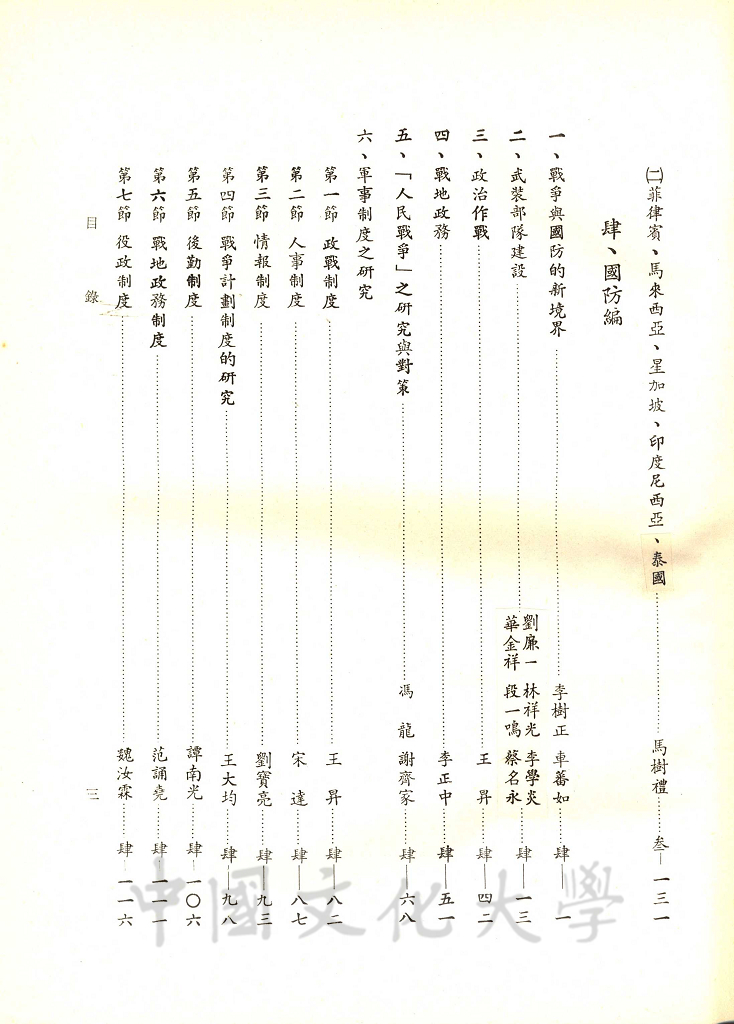 ㈡菲律賓、馬來西亞、星加坡、印度尼西亞、泰國……馬樹禮……叁—一三一
肆、國防編
一、戰爭與國防的新境界……李樹正 車蕃如……肆—一
二、武裝部隊建設……劉廉一 林祥光 李學炎 華金祥 段一鳴 蔡名永……肆—一三
三、政治作戰……王昇……肆—四二
四、戰地政務……李正中……肆—五一
五、「人民戰爭」之研究與對策……馮龍 謝齊家……肆—六八
六、軍事制度之研究
第一節 政戰制度……王昇……肆—八二
第二節 人事制度……宋達……肆—八七
第三節 情報制度……劉寶亮……肆—九三
第四節 戰爭計劃制度的研究……王大均……肆—九八
第五節 後勤制度……譚南光……肆—一〇六
第六節 戰地政務制度……范誦堯……肆—一一一
第七節 役政制度……魏汝霖……肆—一一六
目錄
三
中國文化大學